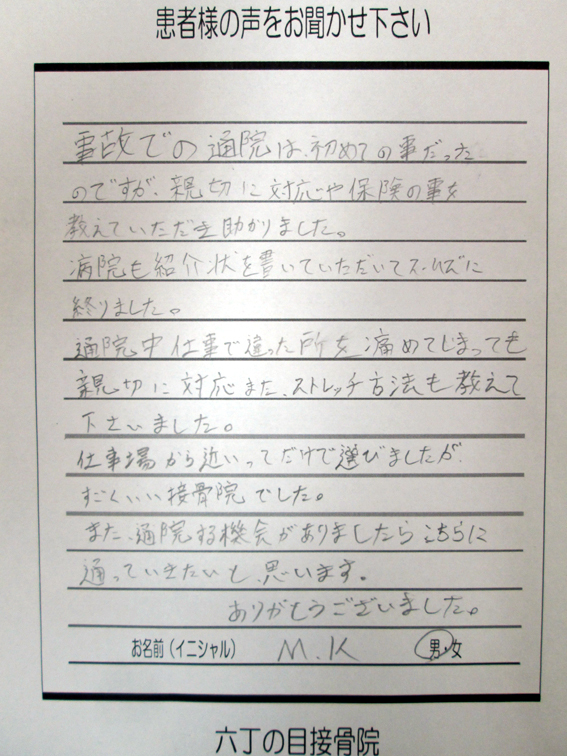 患者様の声をお聞かせ下さい
事故での通院は、初めての事だった
のですが、親切に対応や保険の事を
教えていただき助かりました。
病院も紹介状を書いていただいてスムーズに
終りました。
通院中仕事で違った所を痛めてしまっても
親切に対応また、ストレッチ方法も教えて
下さいました。
仕事場から近いってだけで選びましたが、
すごくいい接骨院でした。
また、通院する機会がありましたらこちらに
通っていきたいと思います。
ありがとうございました。
お名前(イニシャル) M.K 男・女
六丁の目接骨院